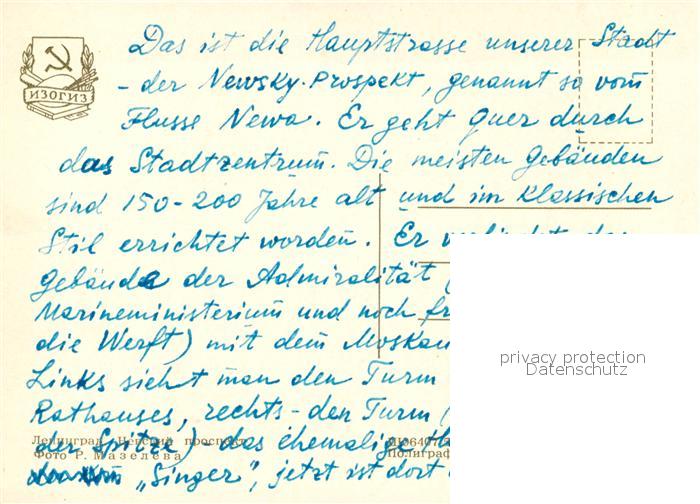 Das ist die Hauptstrasse unserer Stadt
- der Newsky-Prospekt, genannt so vom
Flusse Newa. Er geht quer durch
das Stadtzentrum. Die meisten Gebäuden
sind 150-200 Jahre alt und im klassischen
Stil errichtet worden. Er
Gebäude der Admiralität (
Marineministerium und noch
die Werft) mit dem Moskau
Links sieht man den Turm
Rathauses, rechts - den Turm (
der Spitze) das ehemalige
„Singer", jetzt ist dort
ИЗОГИЗ
Ленинград. Невский проспект
Фото Р. Мазелева
privacy protection
Datenschutz